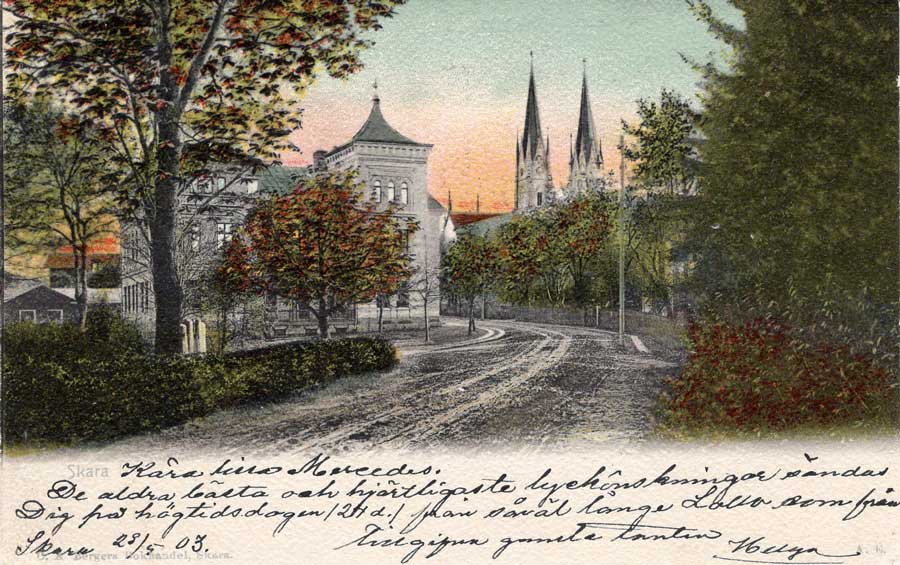 Skara
Kära lilla Mercedes.
De aldra bästa och hjärtligaste lyckönskningar sändas
Dig på högtidsdagen (24 d.) från såväl långe som från
Tillgifna gamla tanten
Helga
Skara 23/9 03.
Bergers Bokhandel, Skara.